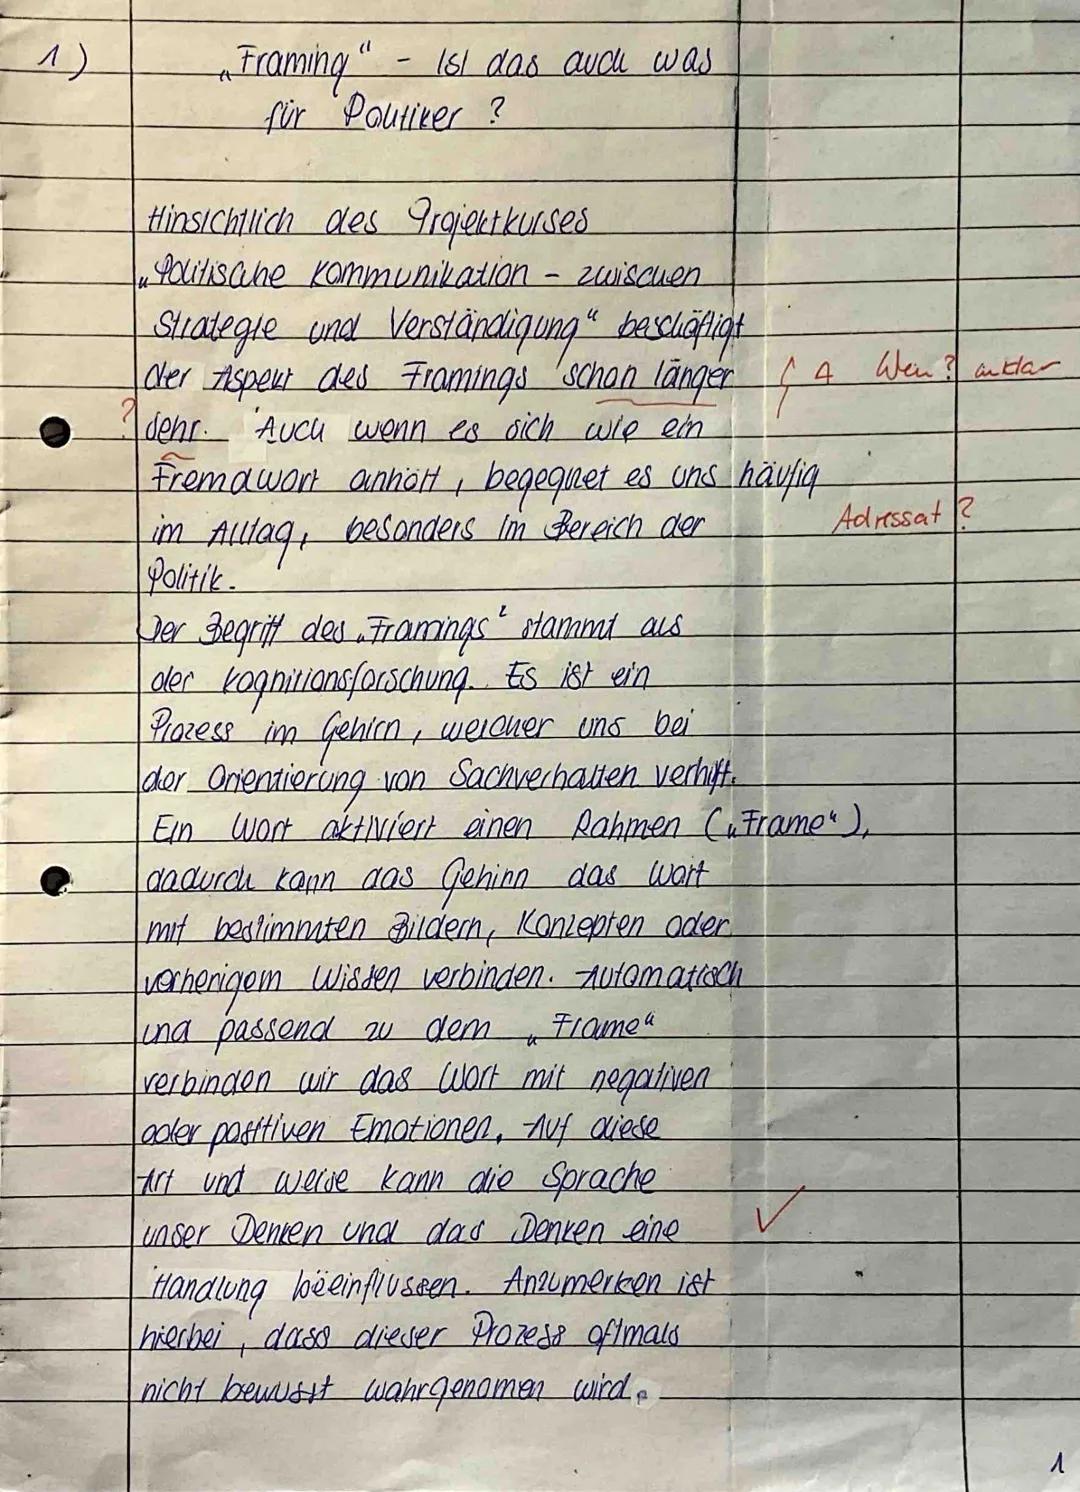 1) „Framing“ - Ist das auch was
für Politiker ?
Hinsichtlich des Projektkurses
„Politische Kommunikation - zwischen
Strategie und Verständigung“ beschäftigt
der Aspekt des Framings schon länger { A Wen? unklar
? sehr. Auch wenn es sich wie ein
Fremdwort anhört, begegnet es uns häufig
im Alltag, besonders im Bereich der Adressat ?
Politik.
Der Begriff des „Framings“ stammt aus
der Kognitionsforschung. Es ist ein
Prozess im Gehirn, welcher uns bei
der Orientierung von Sachverhalten verhilft.
Ein Wort aktiviert einen Rahmen („Frame“),
dadurch kann das Gehirn das Wort
mit bestimmten Bildern, Konzepten oder
vorherigem Wissen verbinden. Automatisch
und passend zu dem „Frame“
verbinden wir das Wort mit negativen
oder positiven Emotionen. Auf diese
Art und Weise kann die Sprache
unser Denken und das Denken eine ✓
Handlung beeinflussen. Anzumerken ist
hierbei, dass dieser Prozess oftmals
nicht bewusst wahrgenomen wird.
1